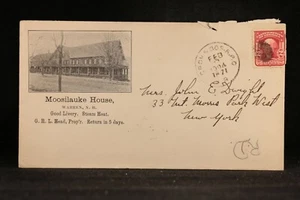 Moosilauke House,
WARREN, N. H.
Good Livery. Steam Heat.
G. E. L. Head, Prop'r. Return in 5 days.
FEB
Mrs. John E. Dwight
33 Mt. Morris Park West
New York